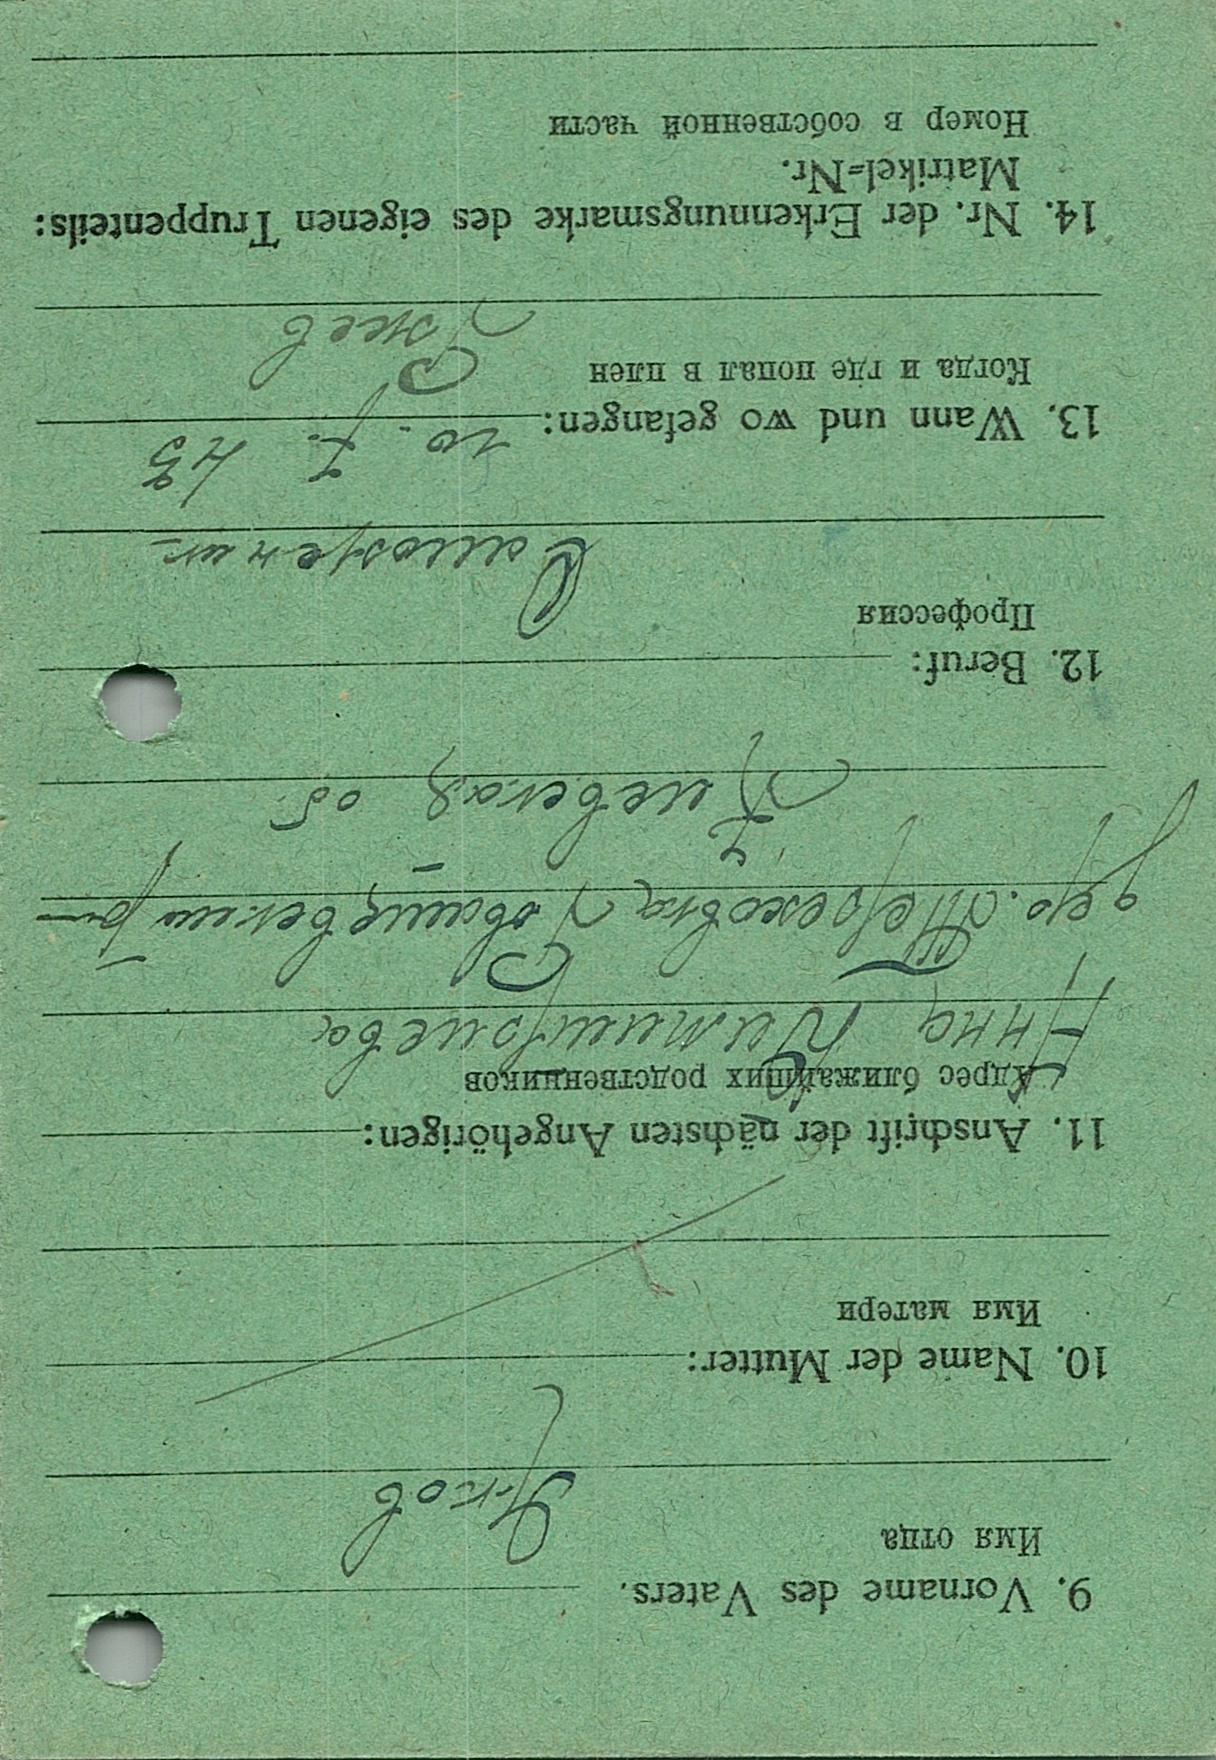 9. Vorname des Vaters.
Имя отца
Яков
10. Name der Mutter:
Имя матери
11. Anschrift der nächsten Angehörigen:
Адрес ближайших родственников
Анна
дер. Тереховка
об
12. Beruf:
Профессия
13. Wann und wo gefangen:
Когда и где попал в плен
43
Ржев
14. Nr. der Erkennungsmarke des eigenen Truppenteils:
Matrikel=Nr.
Номер в собственной части